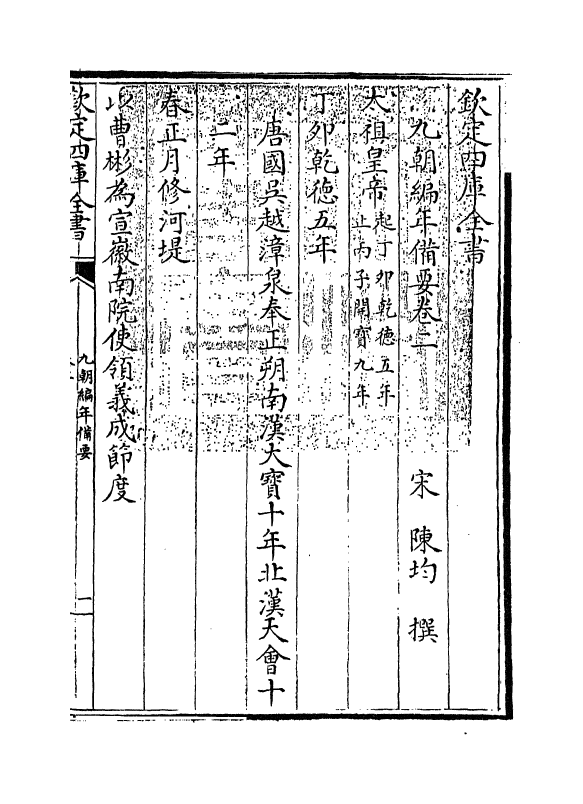 欽定四庫全書
九朝編年備要卷二 宋 陳均 撰
太祖皇帝 起丁卯乾德五年
止丙子開寳九年
丁夘乾德五年
唐國吳越漳泉奉正朔南漢大寶十年北漢天會十
二年
春正月修河堤
以曹彬為宣徽南院使領義成節度
欽定四庫全書
九朝編年備要